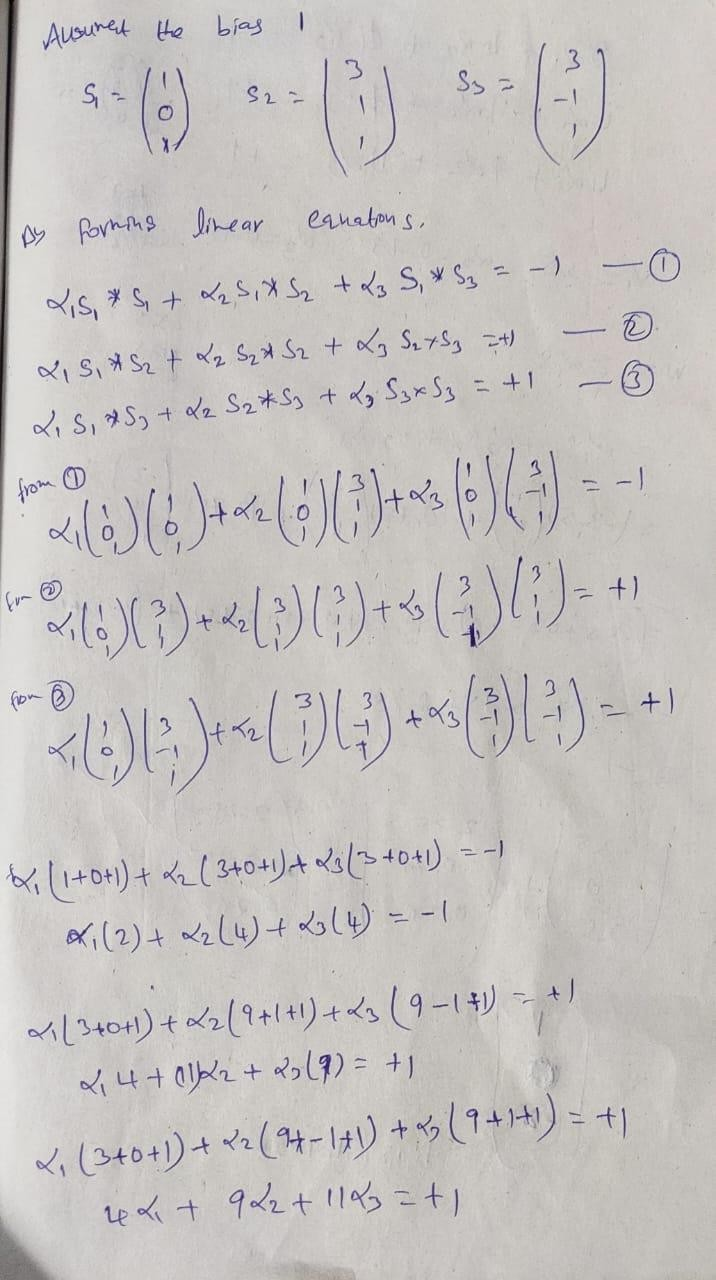 Assumed the bias 1
S₁ = (1 0 1) S2 = (3 1 1) S3 = (3 -1 1)
By forming linear equations.
α₁S₁ * S₁ + α₂ S₁ * S₂ + α₃ S₁ * S₃ = -1 — ①
α₁ S₁ * S₂ + α₂ S₂ * S₂ + α₃ S₂ * S₃ = +1 — ②
α₁ S₁ * S₃ + α₂ S₂ * S₃ + α₃ S₃ * S₃ = +1 — ③
from ①
α₁ (1 0 1) (1 0 1) + α₂ (1 0 1) (3 1 1) + α₃ (1 0 1) (3 -1 1) = -1
from ②
α₁ (1 0 1) (3 1 1) + α₂ (3 1 1) (3 1 1) + α₃ (3 -1 1) (3 1 1) = +1
from ③
α₁ (1 0 1) (3 -1 1) + α₂ (3 1 1) (3 -1 1) + α₃ (3 -1 1) (3 -1 1) = +1
α₁ (1+0+1) + α₂ (3+0+1) + α₃ (3+0+1) = -1
α₁(2) + α₂(4) + α₃(4) = -1
α₁(3+0+1) + α₂(9+1+1) + α₃ (9-1+1) = +1
α₁ 4 + (11)α₂ + α₃(9) = +1
α₁ (3+0+1) + α₂ (9+-1+1) + α₃ (9+1+1) = +1
4α₁ + 9α₂ + 11α₃ = +1